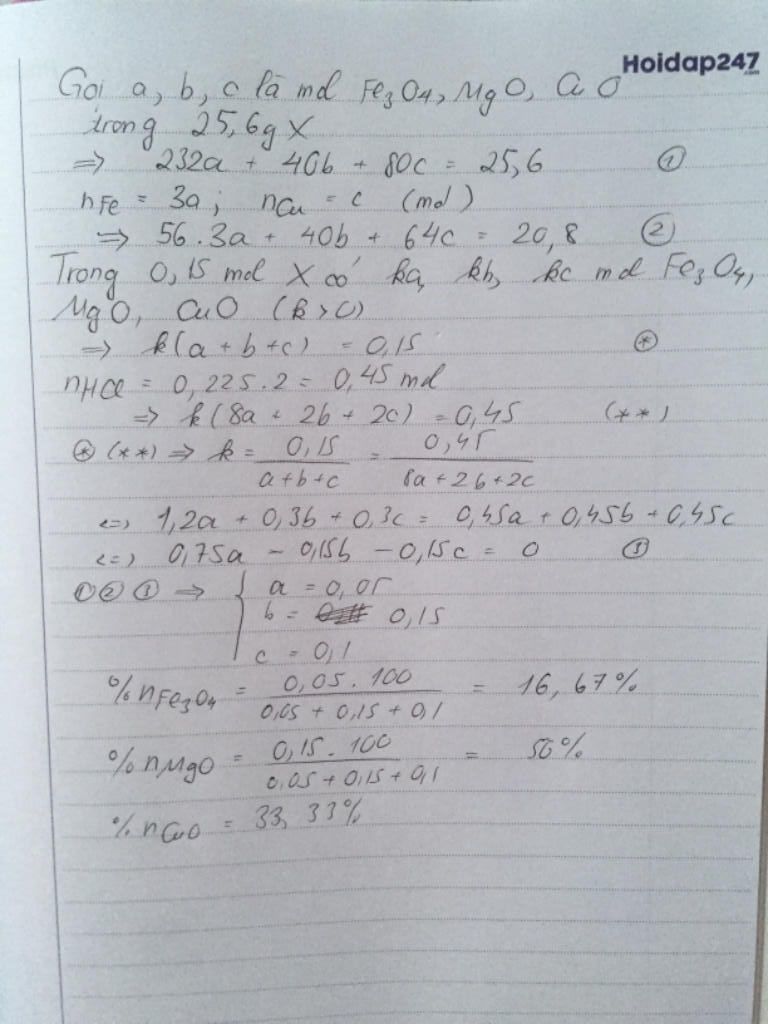 Hoidap247
.com
Gọi a, b, c là mol Fe3O4, MgO, CuO
trong 25,6g X
=> 232a + 40b + 80c = 25,6 ①
nFe = 3a; nCu = c (mol)
=> 56.3a + 40b + 64c = 20,8 ②
Trong 0,15 mol X có ka, kb, kc mol Fe3O4,
MgO, CuO (k>0)
=> k(a+b+c) = 0,15 (*)
nHCl = 0,225.2 = 0,45 mol
=> k(8a + 2b + 2c) = 0,45 (**)
(*) (**) => k = 0,15/(a+b+c) = 0,45/(8a+2b+2c)
<=> 1,2a + 0,3b + 0,3c = 0,45a + 0,45b + 0,45c
<=> 0,75a - 0,15b - 0,15c = 0 ③
①②③ => { a = 0,05
b = 0,15
c = 0,1
%nFe3O4 = 0,05.100/(0,05+0,15+0,1) = 16,67%
%nMgO = 0,15.100/(0,05+0,15+0,1) = 50%
%nCuO = 33,33%